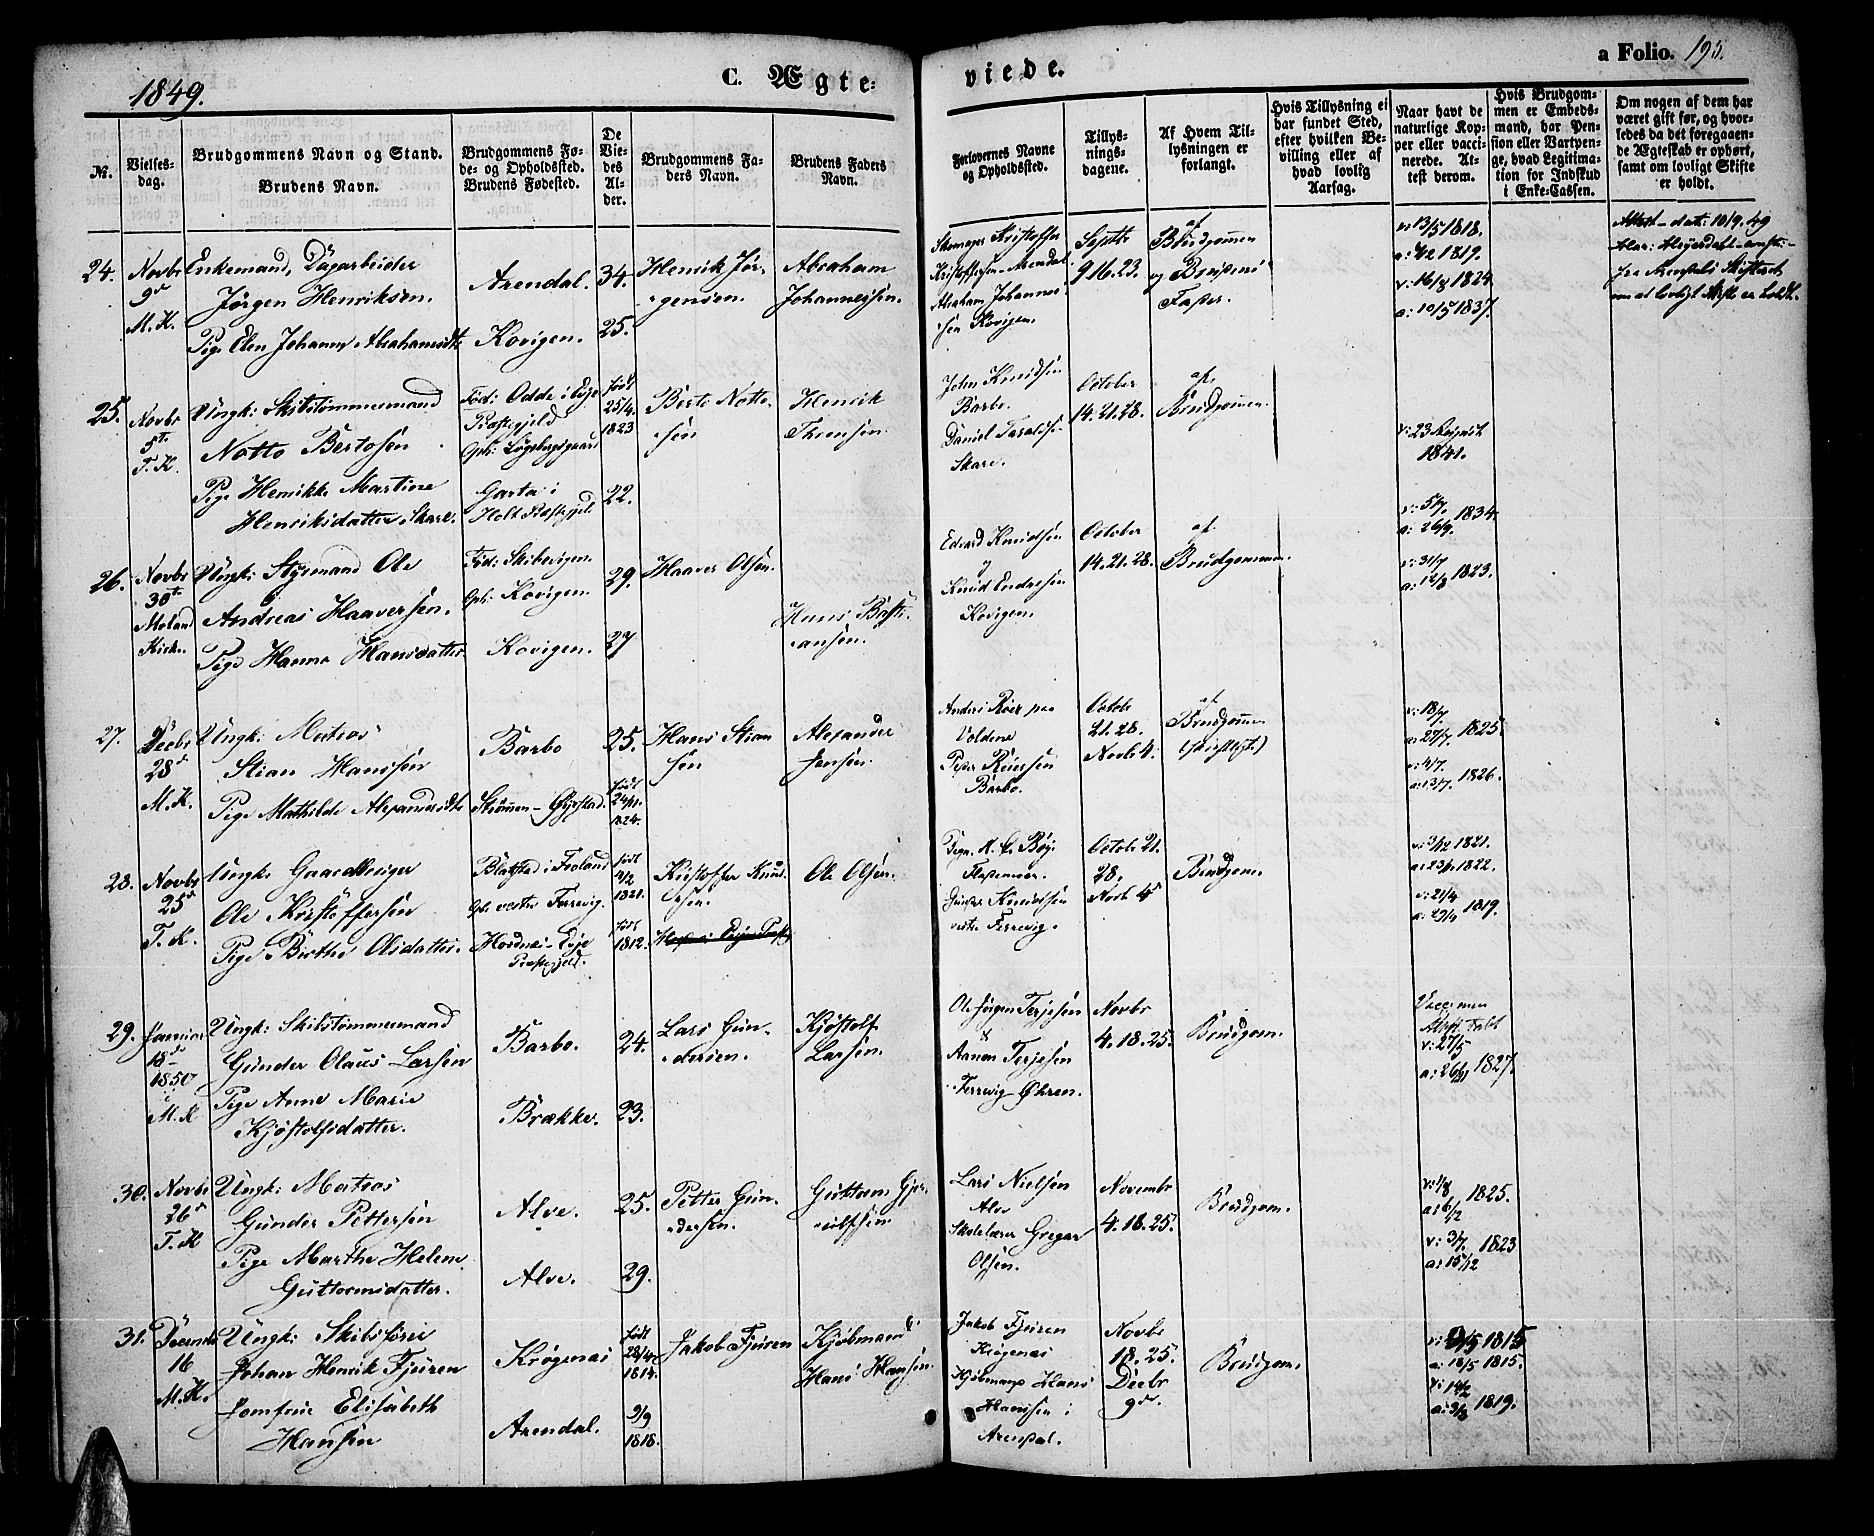 1849.
C. Ægte=
viede.
a Folio. 195.
№.
Vielses-
dag.
Brudgommens Navn og Stand.
Brudens Navn.
Brudgommens Fø-
de- og Opholdssted.
Brudens Fødested.
De
Vie-
des
Al-
der.
Brudgommens Fa-
ders Navn.
Brudens Faders
Navn.
Forlovernes Navne
og Opholdssted.
Tillys-
nings-
dagene.
Af Hvem Til-
lysningen er
forlangt.
Hvis Tillysning ei
har fundet Sted,
efter hvilken Be-
villing eller af
hvad lovlig
Aarsag.
Naar havt de
naturlige Kop-
per eller vacci-
nerede. At-
test derom.
Hvis Brudgom-
men er Embeds-
mand, har Pen-
sion eller Vartpen-
ge, hvad Legitima-
tion for Indskud
i Enke-Cassen.
Om nogen af dem har
været gift før, og hvor-
ledes da det foregaaen-
de Ægteskab er ophørt,
samt om lovligt Skifte
er holdt.
24.
Novbr
9de
M. K.
Enkemand, Dagarbeider
Jørgen Henriksen.
Pige Elen Johanne Abrahamsdtr
Arendal.
Kovigen.
34.
25.
Henrik Jør-
gensen.
Abraham
Johannessen.
Kristoffer
Kristoffersen Arendal
Abraham Johannes-
sen Kovigen.
Septbr
9 16. 23.
af
Brudgommen
og Brudens
Fader.
v: 13/5 1818.
1819.
v: 16/8 1824
a: 10/5 1837.
25.
Novbr
5te
T. K.
Ungk: Skibstømmermand
Notto Bertosen
Pige Henrikke Martine
Henriksdatter Skare.
Fød: Odde i Evje
Præstegjeld
Oph: Løgebergsgaard
Garta i
Holt Præstegjeld
født
25/4.
1823
22.
Berte Notto-
sen
Henrik
Thronsen.
John Knudsen
Barbo.
Daniel Taraldse-
Skare.
October
14. 21. 28.
af
Brudgommen.
v: 23 August
1841.
v: 5/7.
a: 26/9. 1834.
26.
Novbr
30te
Moland
Kirke.
Ungk: Styrmand Ole
Andreas Haaversen.
Pige Hanne Hansdatter
Fød: Skibevigen.
Oph: Kovigen.
Kovigen.
29.
27
Haaver Olsen.
Hans Basti-
ansen.
Edvard Knudsen
og
Knud Endresen
Kovigen.
October
14. 21. 28.
af
Brudgommen.
v: 31/7
a: 12/8 1823.
27.
Decbr
28de
M. K.
Ungk: Matros
Stian Hanssen
Pige Mathilde Alexandersdtr
Barbo
Strømmen - Øyestad.
25.
født
24/11.
1824.
Hans Stian
sen
Alexander
Jensen.
Anders Roer paa
Voldene
Peder Reiersen
Barbo.
Octobr
21. 28.
Novbr 4.
af
Brudgommen
(skriftligt)
v: 18/7
a: 27/7. 1825.
v: 4/7.
a: 13/7. 1826.
28.
Novbr
25de
T. K.
Ungk: Gaardbruger
Ole Kristoffersen
Pige Birthe Olsdatter.
Blakstad i Froland
Oph: vestre Terrevig.
Hordnæs - Evje
Præstegjeld.
født
4/2
1821.
født
1812.
Kristoffer Knud-
sen.
Ole Olsen.
Knudsen
vestre Terrevig.
October 21.
28.
Novb 4de
Brudgom.
v: 3/12 1821.
a: 23/1 1822.
v: 21/4
a: 29/4 1819.
29.
Januar
18de
1850
i
M. K
Ungk: Skibstømmermand
Gunder Olaus Larsen
Pige Anne Marie
Kjøstolfsdatter.
Barbo.
Brække.
24.
23.
Lars Gun-
dersen.
Kjøstolf
Larsen.
Ole Jørgen Terjesen
&
Aanon Terjesen
Terrevig Øhren.
Novbr
4. 18. 25.
Brudgom.
Vacc: men
Attest Feldt
v: 27/5
1827.
30.
Novbr
26de
T. K
Ungk: Matros
Gunder Pettersen
Pige Marthe Helene
Guttormsdatter.
Alve.
Alve.
25.
29.
Petter Gun-
dersen.
Guttorm Gjer-
ulfsen.
Lars Nielsen
Alve
Skolelærer Gregar
Olsen.
Novembr
4. 18. 25.
Brudgom.
v: 1/8
a: 6/12 1825.
v: 3/7.
a: 15/12 1823
31.
Decembr
16
M. K.
Ungk: Skibsfører
Johan Henrik Fjuren
Jomfrue Elisabeth
Hansen
Krøgenæs
Arendal.
født
28/4
1814.
9/9
1818.
Jakob Fjuren
Kjøbmand
Hans Hansen.
Jakob Fjuren
Krøgenæs
Kjøbmand Hans
Hansen i
Arendal.
Novbr
18. 25.
Decbr
9de
Brudgom.
1815
a: 18/5 1815.
v: 14/2
a: 3/3 1819.